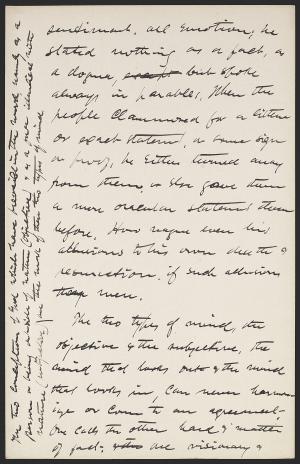 sentiment, all emotion; he
stated nothing as a fact, as
a dogma, but spoke
always in parables. When the
people clammored for a literal
or exact statement, or some sign
or proof, he either turned away
from them, or else gave them
a more oracular statement than
before. How vague even his
allusions to his own death &
resurrection, if such allusions
they were.
The two types of mind, the
objective & the subjective, the
mind that looks out & the mind
that looks in, can never harmon-
ize or come to an agreement.
One calls the other hard & matter
of fact; are visionary &
The two conceptions of God which have prevailed in the world, one as a
person or being outside of nature (objective) & as a power identical with
nature (subjective) are the work of these two types of mind